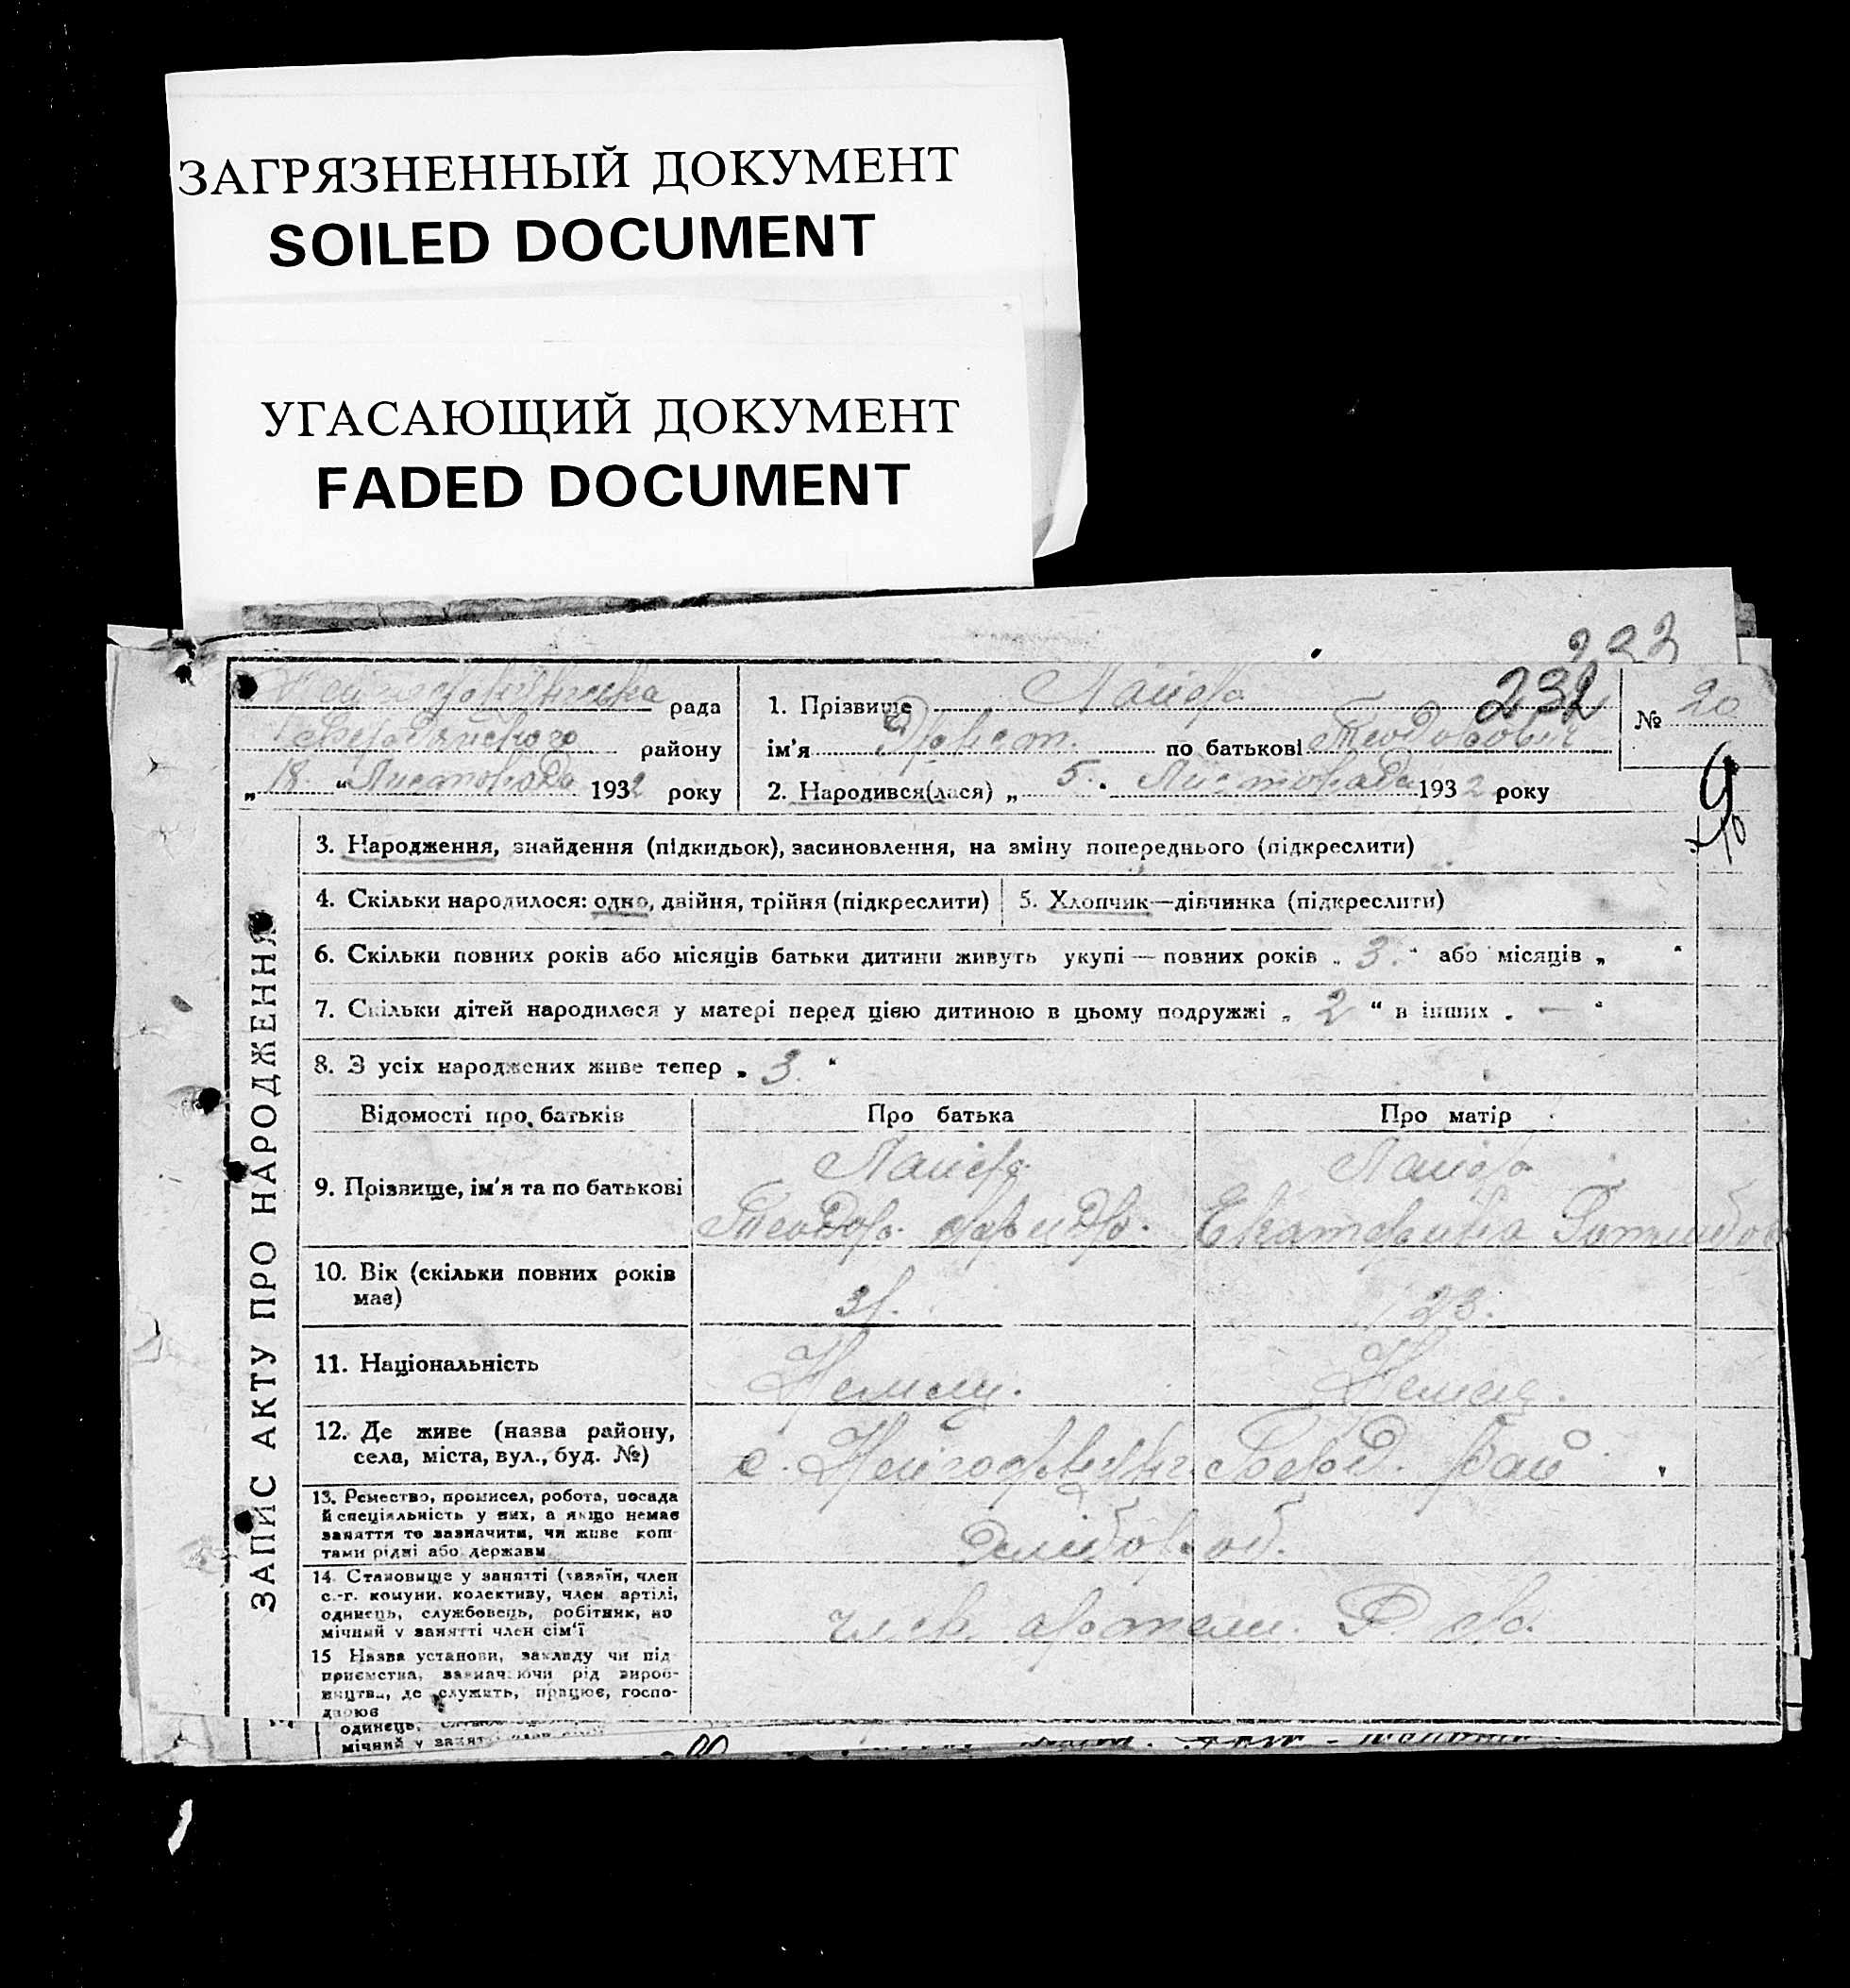 ЗАГРЯЗНЕННЫЙ ДОКУМЕНТ
SOILED DOCUMENT
УГАСАЮЩИЙ ДОКУМЕНТ
FADED DOCUMENT
232
рада
району
„ 18 “ Листопада 1932 року
1. Прізвище
ім'я Ернст. по батькові Теодорович
2. Народився(лася) „ 5. “ Листопада 1932 року
№ 20
ЗАПИС АКТУ ПРО НАРОДЖЕННЯ
3. Народження, знайдення (підкидьок), засиновлення, на зміну попереднього (підкреслити)
4. Скільки народилося: одно, двійня, трійня (підкреслити)
5. Хлопчик—дівчинка (підкреслити)
6. Скільки повних років або місяців батьки дитини живуть укупі — повних років „ 3. “ або місяців „ “
7. Скільки дітей народилося у матері перед цією дитиною в цьому подружжі „ 2 “ в інших „ — “
8. З усіх народжених живе тепер „ 3. “
Відомості про батьків
Про батька
Про матір
9. Прізвище, ім'я та по батькові
Теодор. Фридр.
Екатерина
10. Вік (скільки повних років має)
31.
23.
11. Національність
Немец.
Немец.
12. Де живе (назва району, села, міста, вул., буд. №)
с.
рай
13. Ремество, промисел, робота, посада
й спеціяльність у них, а якщо немає
заняття то зазначити, чи живе кош-
тами рідні або держави
14. Становище у занятті (хазяїн, член
с.-г. комуни, колективу, член артілі,
одинець, службовець, робітник, по
мічний у занятті член сім'ї
член артели. Р. ф.
15 Назва установи, закладу чи під-
приємства, зазначаючи рід вироб-
ництва, де служить, працює, госпо-
дарює
одинець,
мічний у занят